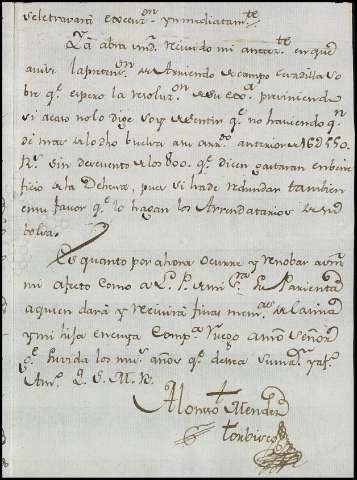 se le travará execuz.on ynmediatam.te
Ya abra vmd. recivido mi antez.te en que
avisé la preten.on de Arriendo de campo
bre q.e espero la resoluz.on de su ex.a previniendo
si acaso no lo dije soy de sentir q.e no haviendo q.n
de mas de lo dho buelva a su arr.do anterior de 16D550
R.s sin descuento de los 800. q.e dicen gastaran en bene
ficio de la Dehesa, pues si ha de redundar tambien
en su favor q.e lo hagan los Arrendatarios de su
bolsa.
Es quanto por ahora ocurre y renobar a vm.
mi afecto como a L. P. de mi s.ra su Parienta
a quien dará y recivirá finas mem.as de la mia
y mi hija en cuya comp.a ruego a nro Señor
g.e su vida los mu.s años q.e desea su mas y af.to
Am.o Q. S. M. B.
Alonso Mendez